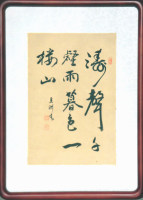 濤聲千
煙雨暮色一
楼山